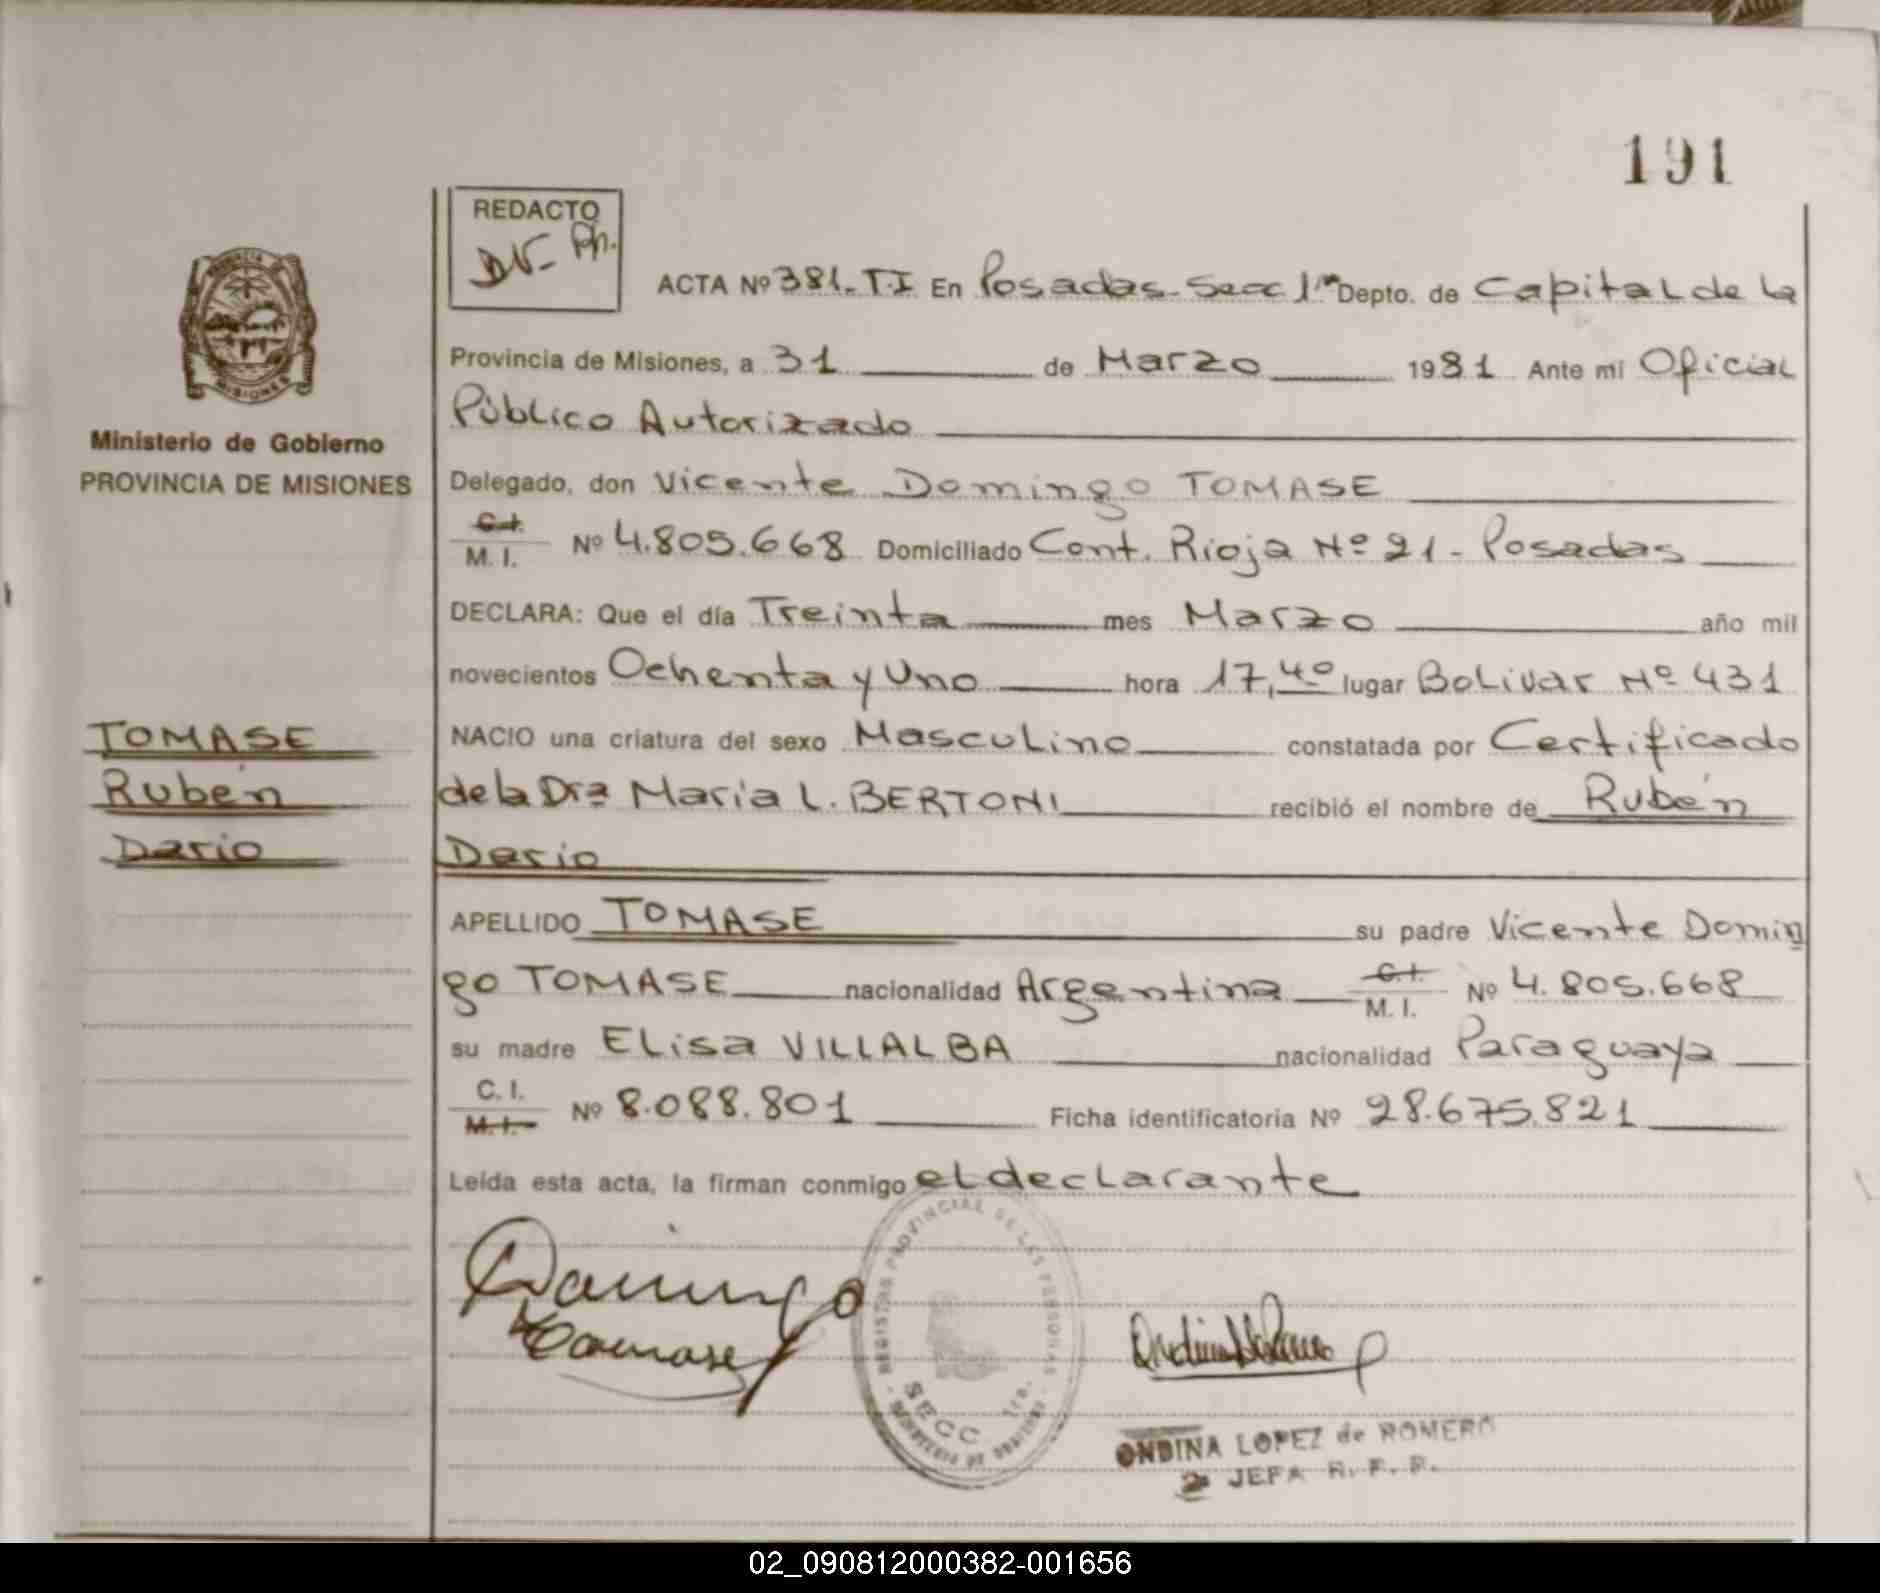 191
REDACTO
DV- Ph.
ACTA Nº 381-T.I En Posadas-Secc 1ª Depto. de Capital de la
Provincia de Misiones, a 31 de Marzo 1981 Ante mi Oficial
Público Autorizado
Ministerio de Gobierno
PROVINCIA DE MISIONES
Delegado, don Vicente Domingo TOMASE
C.I.
M. I. Nº 4.805.668 Domiciliado Cont. Rioja Nº 21 - Posadas
DECLARA: Que el día Treinta mes Marzo año mil
novecientos Ochenta y Uno hora 17,40 lugar Bolivar Nº 431
TOMASE
Rubén
Dario
NACIO una criatura del sexo Masculino constatada por Certificado
de la Dra Maria L. BERTONI recibió el nombre de Rubén
Dario
APELLIDO TOMASE su padre Vicente Domin
go TOMASE nacionalidad Argentina C.I. M. I. Nº 4.805.668
su madre Elisa VILLALBA nacionalidad Paraguaya
C. I.
M. I. Nº 8.088.801 Ficha identificatoria Nº 28.675.821
Leída esta acta, la firman conmigo el declarante
Domingo
Tomase
REGISTRO PROVINCIAL DE LAS PERSONAS
SECC 1ra.
ONDINA LOPEZ de ROMERO
JEFA R. P. P.
02_090812000382-001656